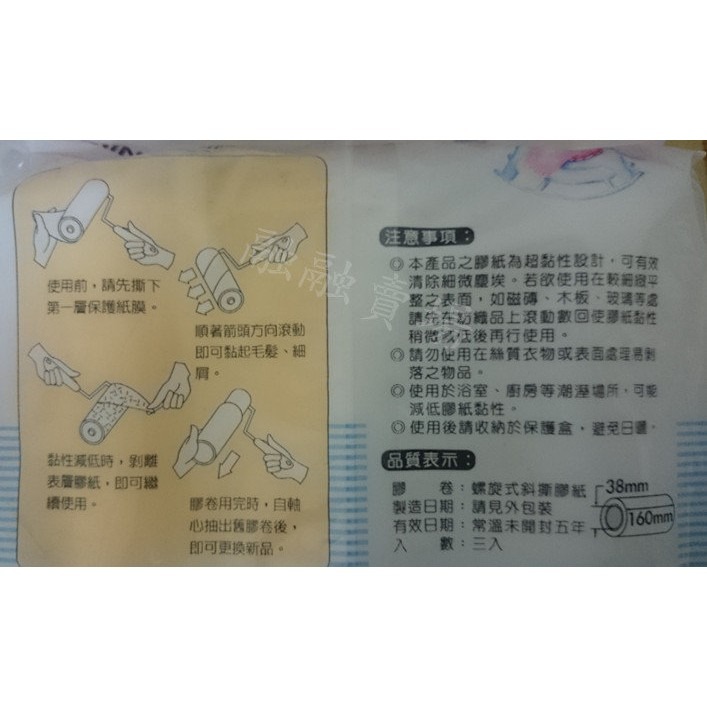 使用前，請先撕下
第一層保護紙膜。
順著箭頭方向滾動
即可黏起毛髮、細
屑。
黏性減低時，剝離
表層膠紙，即可繼
續使用。
膠卷用完時，自軸
心抽出舊膠卷後，
即可更換新品。
注意事項：
◎本產品之膠紙為超黏性設計，可有效
清除細微塵埃。若欲使用在較細緻平
整之表面，如磁磚、木板、玻璃等處
請先在紡織品上滾動數回使膠紙黏性
稍微減低後再行使用。
◎請勿使用在絲質衣物或表面處理易剝
落之物品。
◎使用於浴室、廚房等潮溼場所，可能
減低膠紙黏性。
◎使用後請收納於保護盒，避免日曬。
品質表示：
膠　卷：螺旋式斜撕膠紙
製造日期：請見外包裝
有效日期：常溫未開封五年
入　數：三入
38mm
160mm
融融賣